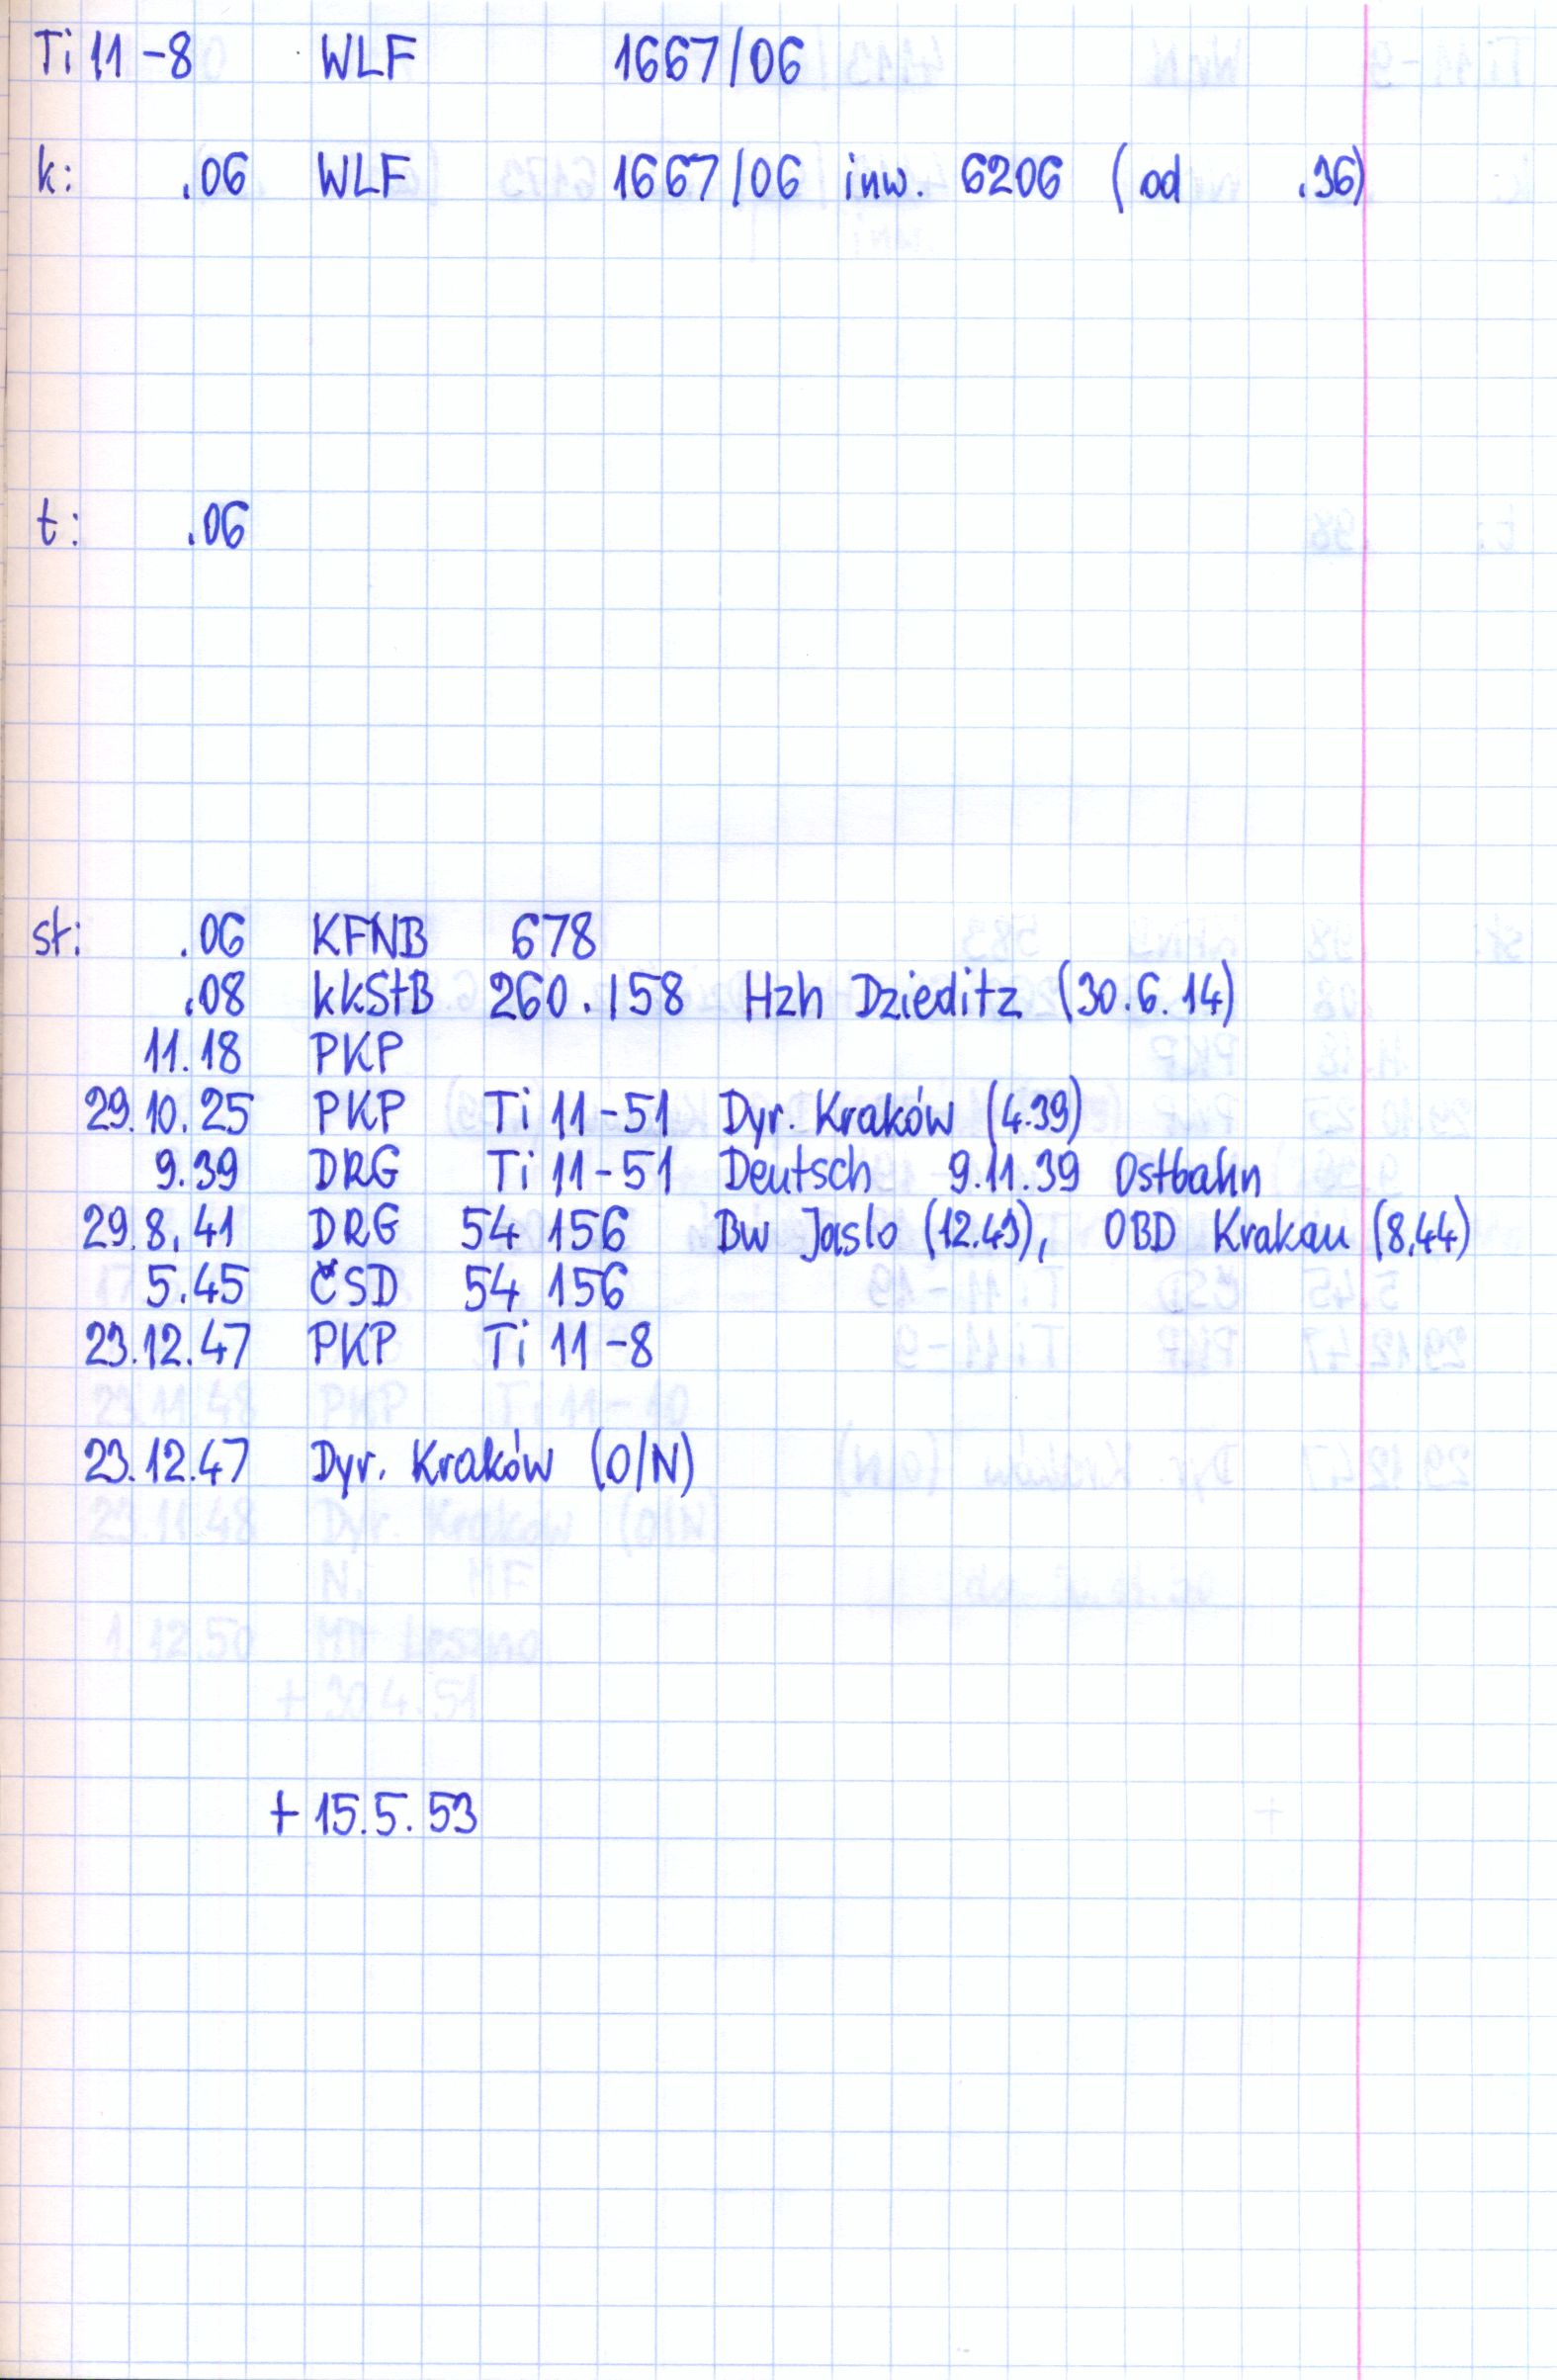 Ti 11-8 WLF 1667/06
k: .06 WLF 1667/06 inw. 6206 (od .36)
t: .06
st: .06 KFNB 678
.08 kkStB 260.158 Hzh Dzieditz (30.6.14)
11.18 PKP
29.10.25 PKP Ti 11-51 Dyr. Kraków (4.39)
9.39 DRG Ti 11-51 Deutsch 9.11.39 Ostbahn
29.8.41 DRG 54 156 Bw Jaslo (12.43), OBD Krakau (8.44)
5.45 ČSD 54 156
23.12.47 PKP Ti 11-8
23.11.48 PKP Ti 11-10
23.12.47 Dyr. Kraków (O/N)
23.11.48 Dyr. Kraków (O/N)
1.12.50 MD Leszno
+ 30.4.51
+ 15.5.53